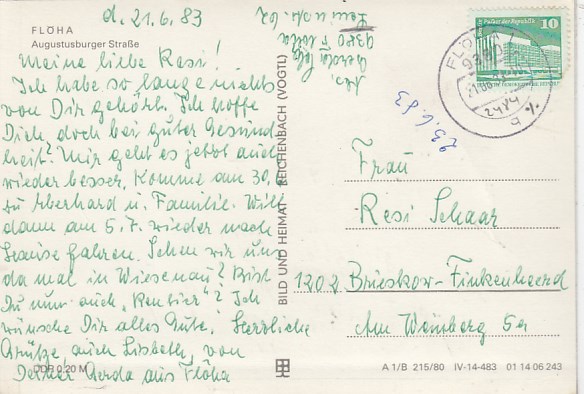 d. 21.6.83
FLÖHA
Augustusburger Straße
Meine liebe Resi!
Ich habe so lange nichts
von Dir gehört. Ich hoffe
Dich doch bei guter Gesund
heit? Mir geht es jetzt auch
wieder besser, komme am 30.6
zu Eberhard u. Familie. Will
dann am 5.7. wieder nach
Hause fahren. Sehen wir uns
da mal in Wiesenau? Bist
Du nun auch "Rentier"? Ich
wünsche Dir alles Gute. Herzliche
Grüße, auch Lisbeth, von
Deiner Gerda aus Flöha
DDR 0,20 M
Abs.
Gerda
9380 Flöha
BILD UND HEIMAT REICHENBACH (VOGTL)
10
FLÖHA
9380
21.06.
23.6.83
Frau
Resi Schaar
1202 Brieskow-Finkenheerd
Am Weinberg 5a
A 1/B 215/80 IV-14-483 01 14 06 243